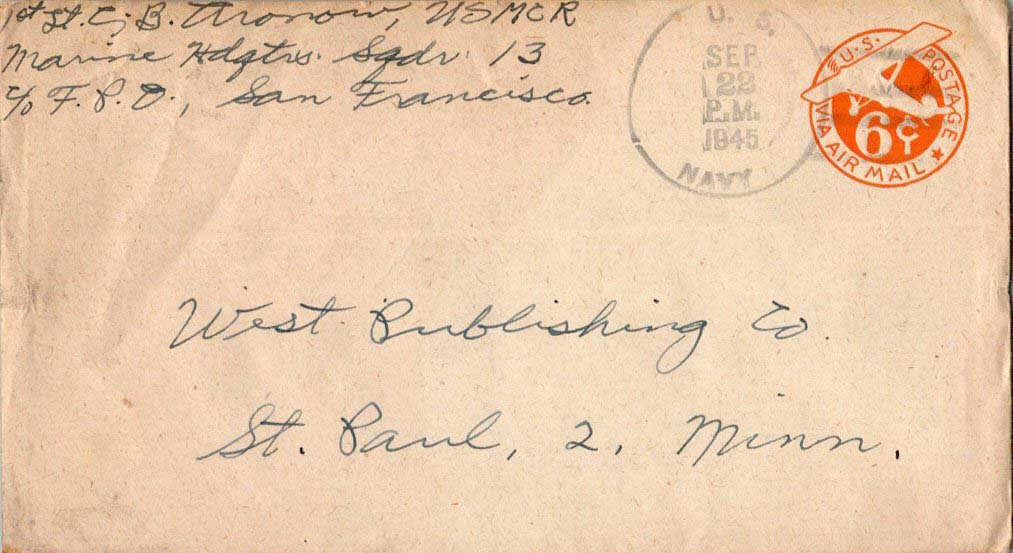 1st Lt. G. B. Aronow, USMCR
Marine Hdqtrs. Sqdr. 13
c/o F. P. O., San Francisco.
U. S.
SEP
22
P.M.
1945
NAVY
U.S. POSTAGE
6¢
VIA AIR MAIL
West Publishing Co.
St. Paul, 2. Minn.